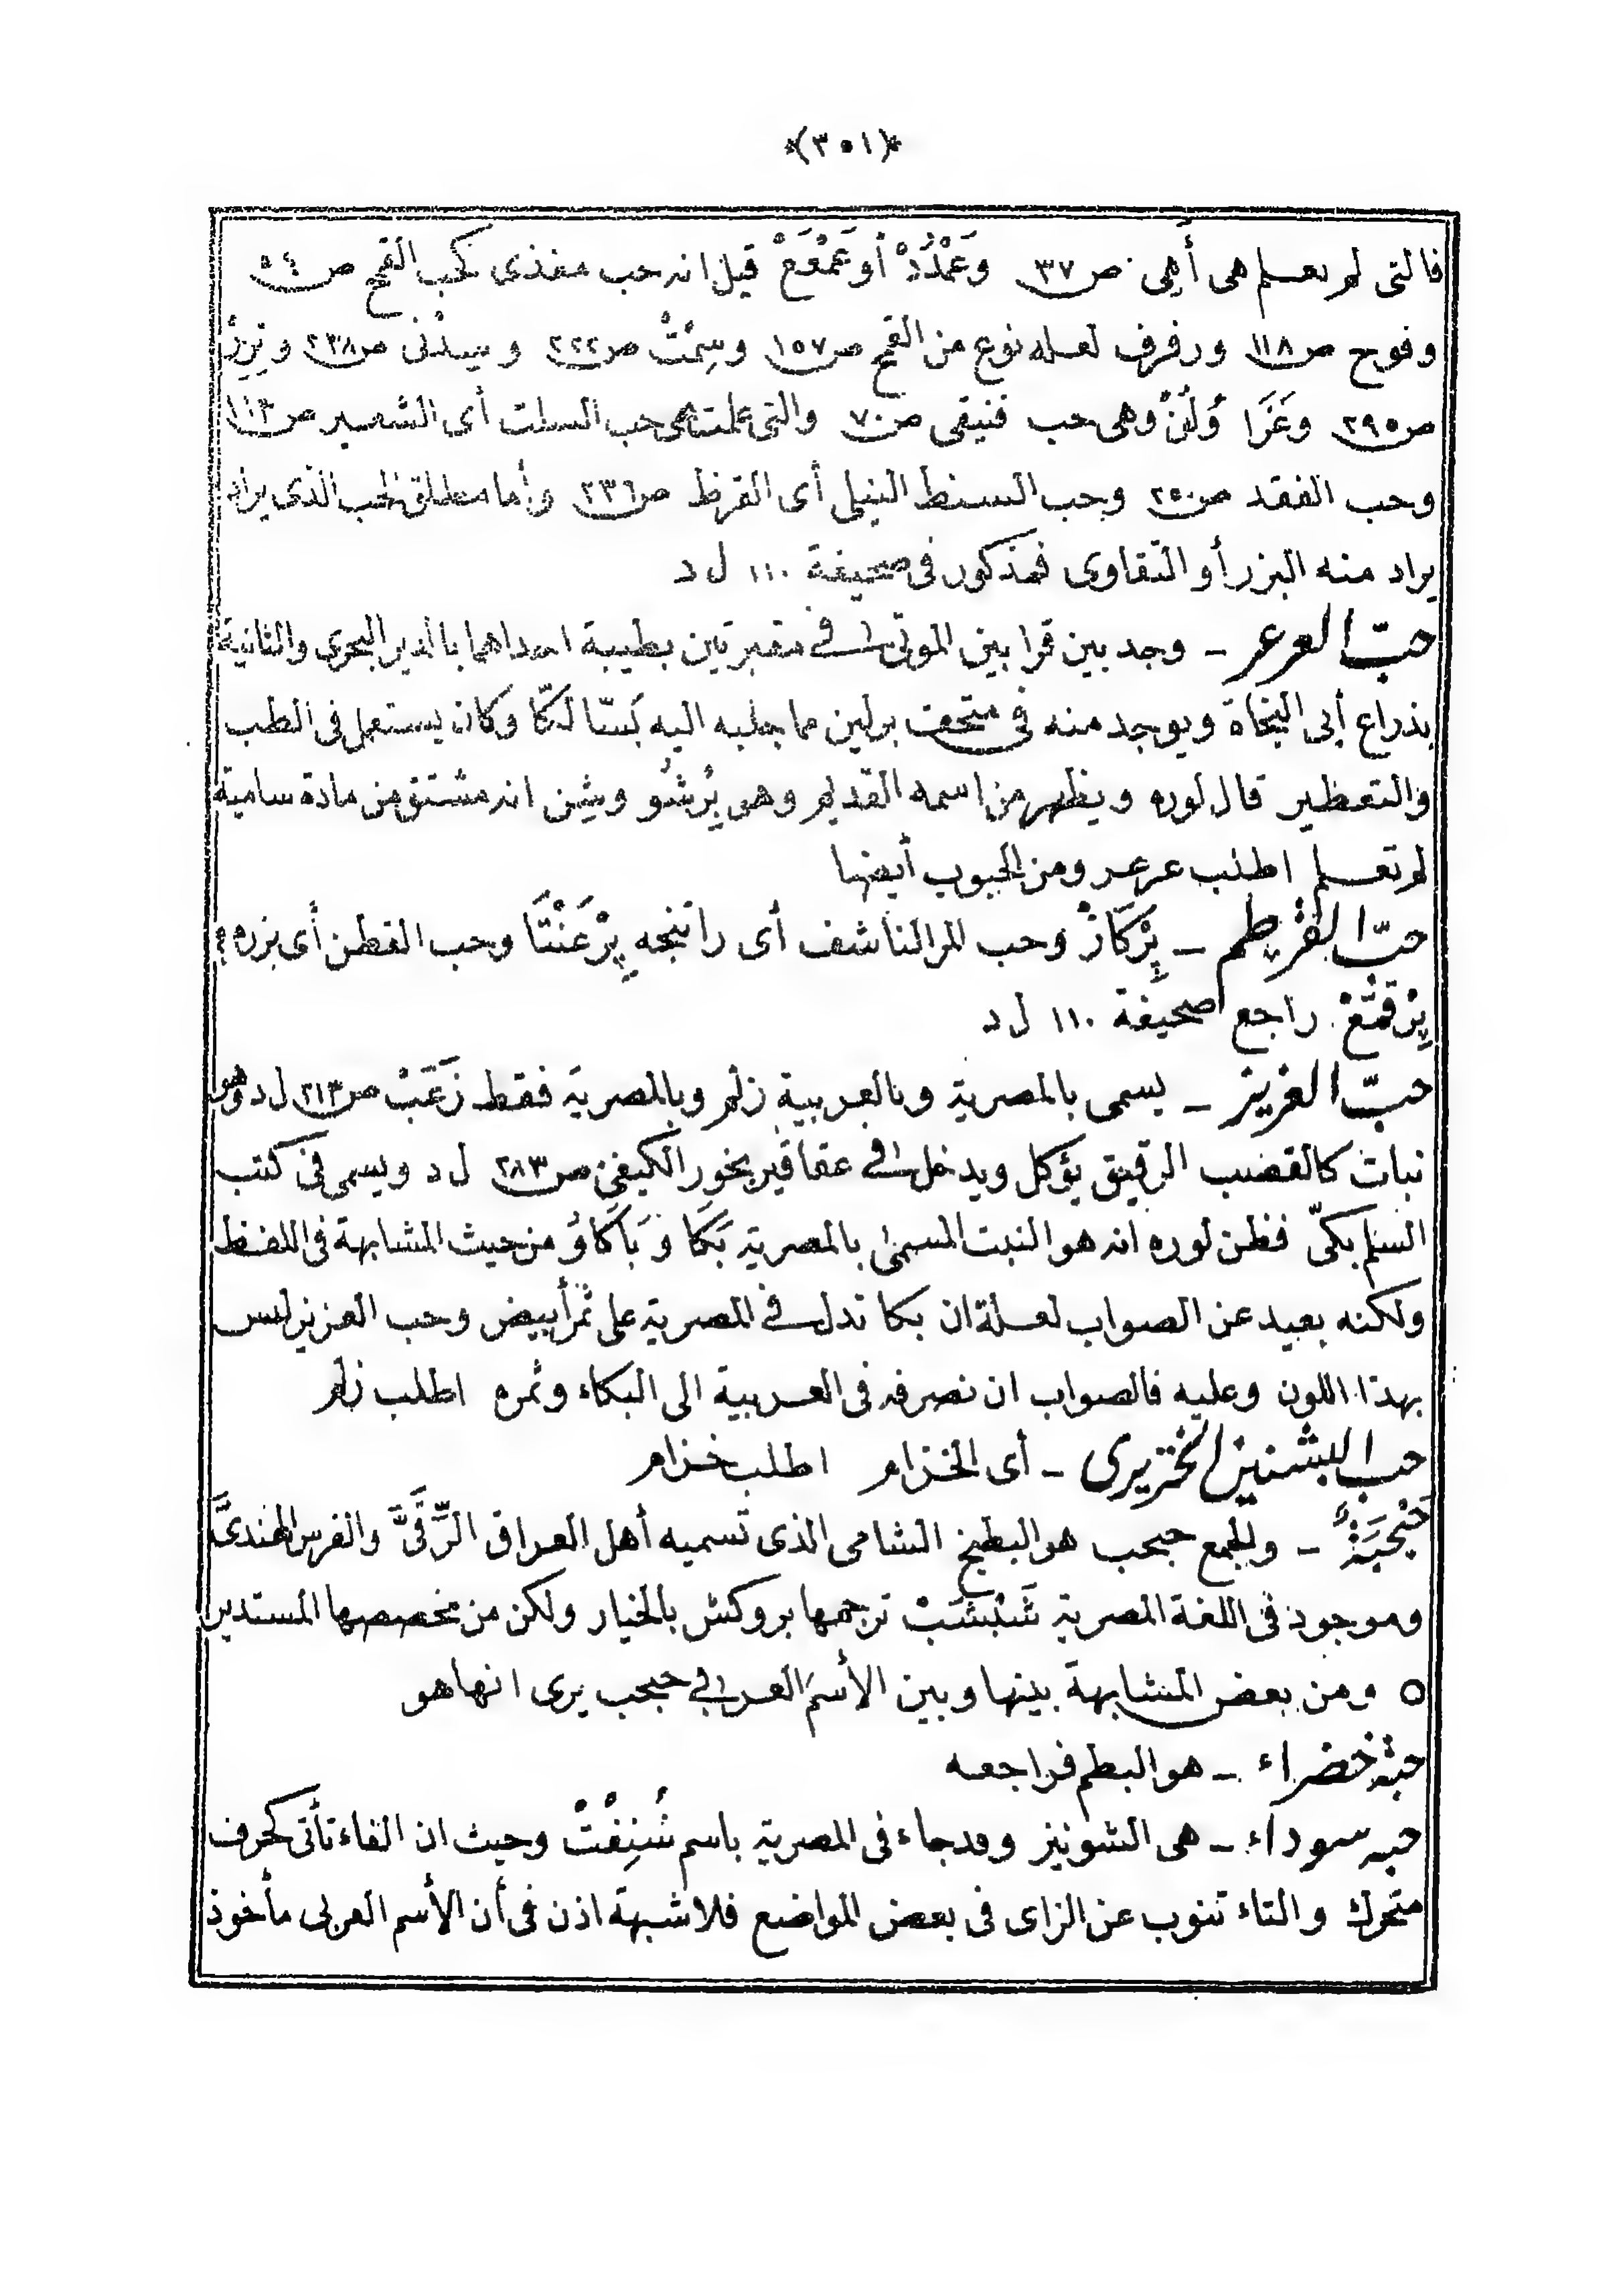 *(٣٥١)*
فالتى لم تعلم هى أَهِى ص٣٧ وعَمْدُدْ أو عَمْعَعْ قيل انه حب مغذى كحب القمح ص٥٤
وفوح ص١١٨ ورفرف لعله نوع من القمح ص١٥٧ وسِمْتْ ص٢٢٢ و ص٢٣٨ و
ص٢٩٥ وهى حب فنيقى ص٧٠ والتى علمت هى حب السلت أى الشعير ص١١٣
وحب الفقد ص٢٥٠ وحب السنط النيلى أى القرظ ص٢٣٦ وأما مطلق الحب الذى يراد
يراد منه البزر أو التقاوى فمذكور فى صحيفة ١١٠ ل د
حبّ العرعر ـ وجد بين قرابين الموتى فى مقبرتين بطيبة احداهما بالدير البحرى والثانية
بذراع أبى النجاة ويوجد منه فى متحف برلين مما جلبه اليه بَسّالكّا وكان يستعمل فى الطب
والتعطير قال لوره ويظهر من اسمه القديم وهى بِرْشُو وشِن انه مشتق من مادة سامية
لم تعلم اطلب عرعر ومن الحبوب أيضا
حبّ القرطم ـ بِرْكَازْ وحب المر الناشف أى راتنجه بِرْعَنْتَا وحب القطن أى بزره
بِرْقَمَّعْ راجع صحيفة ١١٠ ل د
حبّ العزيز ـ يسمى بالمصرية وبالعربية زلم وبالمصرية فقط زَعَبْ ص٢١٣ ل د وهو
نبات كالقضب الرقيق يؤكل ويدخل فى عقاقير بخور الكيفى ص٢٨٣ ل د ويسمى فى كتب
السلم بكىّ فظن لوره انه هو النبت المسمى بالمصرية بَكَا وَبَاكَاوُ من حيث المشابهة فى اللفظ
ولكنه بعيد عن الصواب لعلة ان بكا تدل فى المصرية على ثمر أبيض وحب العزيز ليس
بهذا اللون وعليه فالصواب ان نصرفه فى العربية الى البكاء وثمره اطلب زلم
حب البشنين الخنزيرى ـ أى الخزام اطلب خزام
حَبْحَبَةٌ ـ والجمع حبحب هو البطيخ الشامى الذى تسميه أهل العراق الرَّقىَّ والفرس الهندىَّ
وموجود فى اللغة المصرية شَبْشَبْ ترجمها بروكش بالخيار ولكن من مخصصها المستدير
O ومن بعض المشابهة بينها وبين الأسم العربى حبحب يرى انها هو
حبة خضراء ـ هو البطم فراجعه
حبه سوداء ـ هى الشونيز وقد جاء فى المصرية باسم شُنِفْتْ وحيث ان الفاء تأتى كحرف
متحرك والتاء تنوب عن الزاى فى بعض المواضع فلا شبهة اذن فى أن الأسم العربى مأخوذ